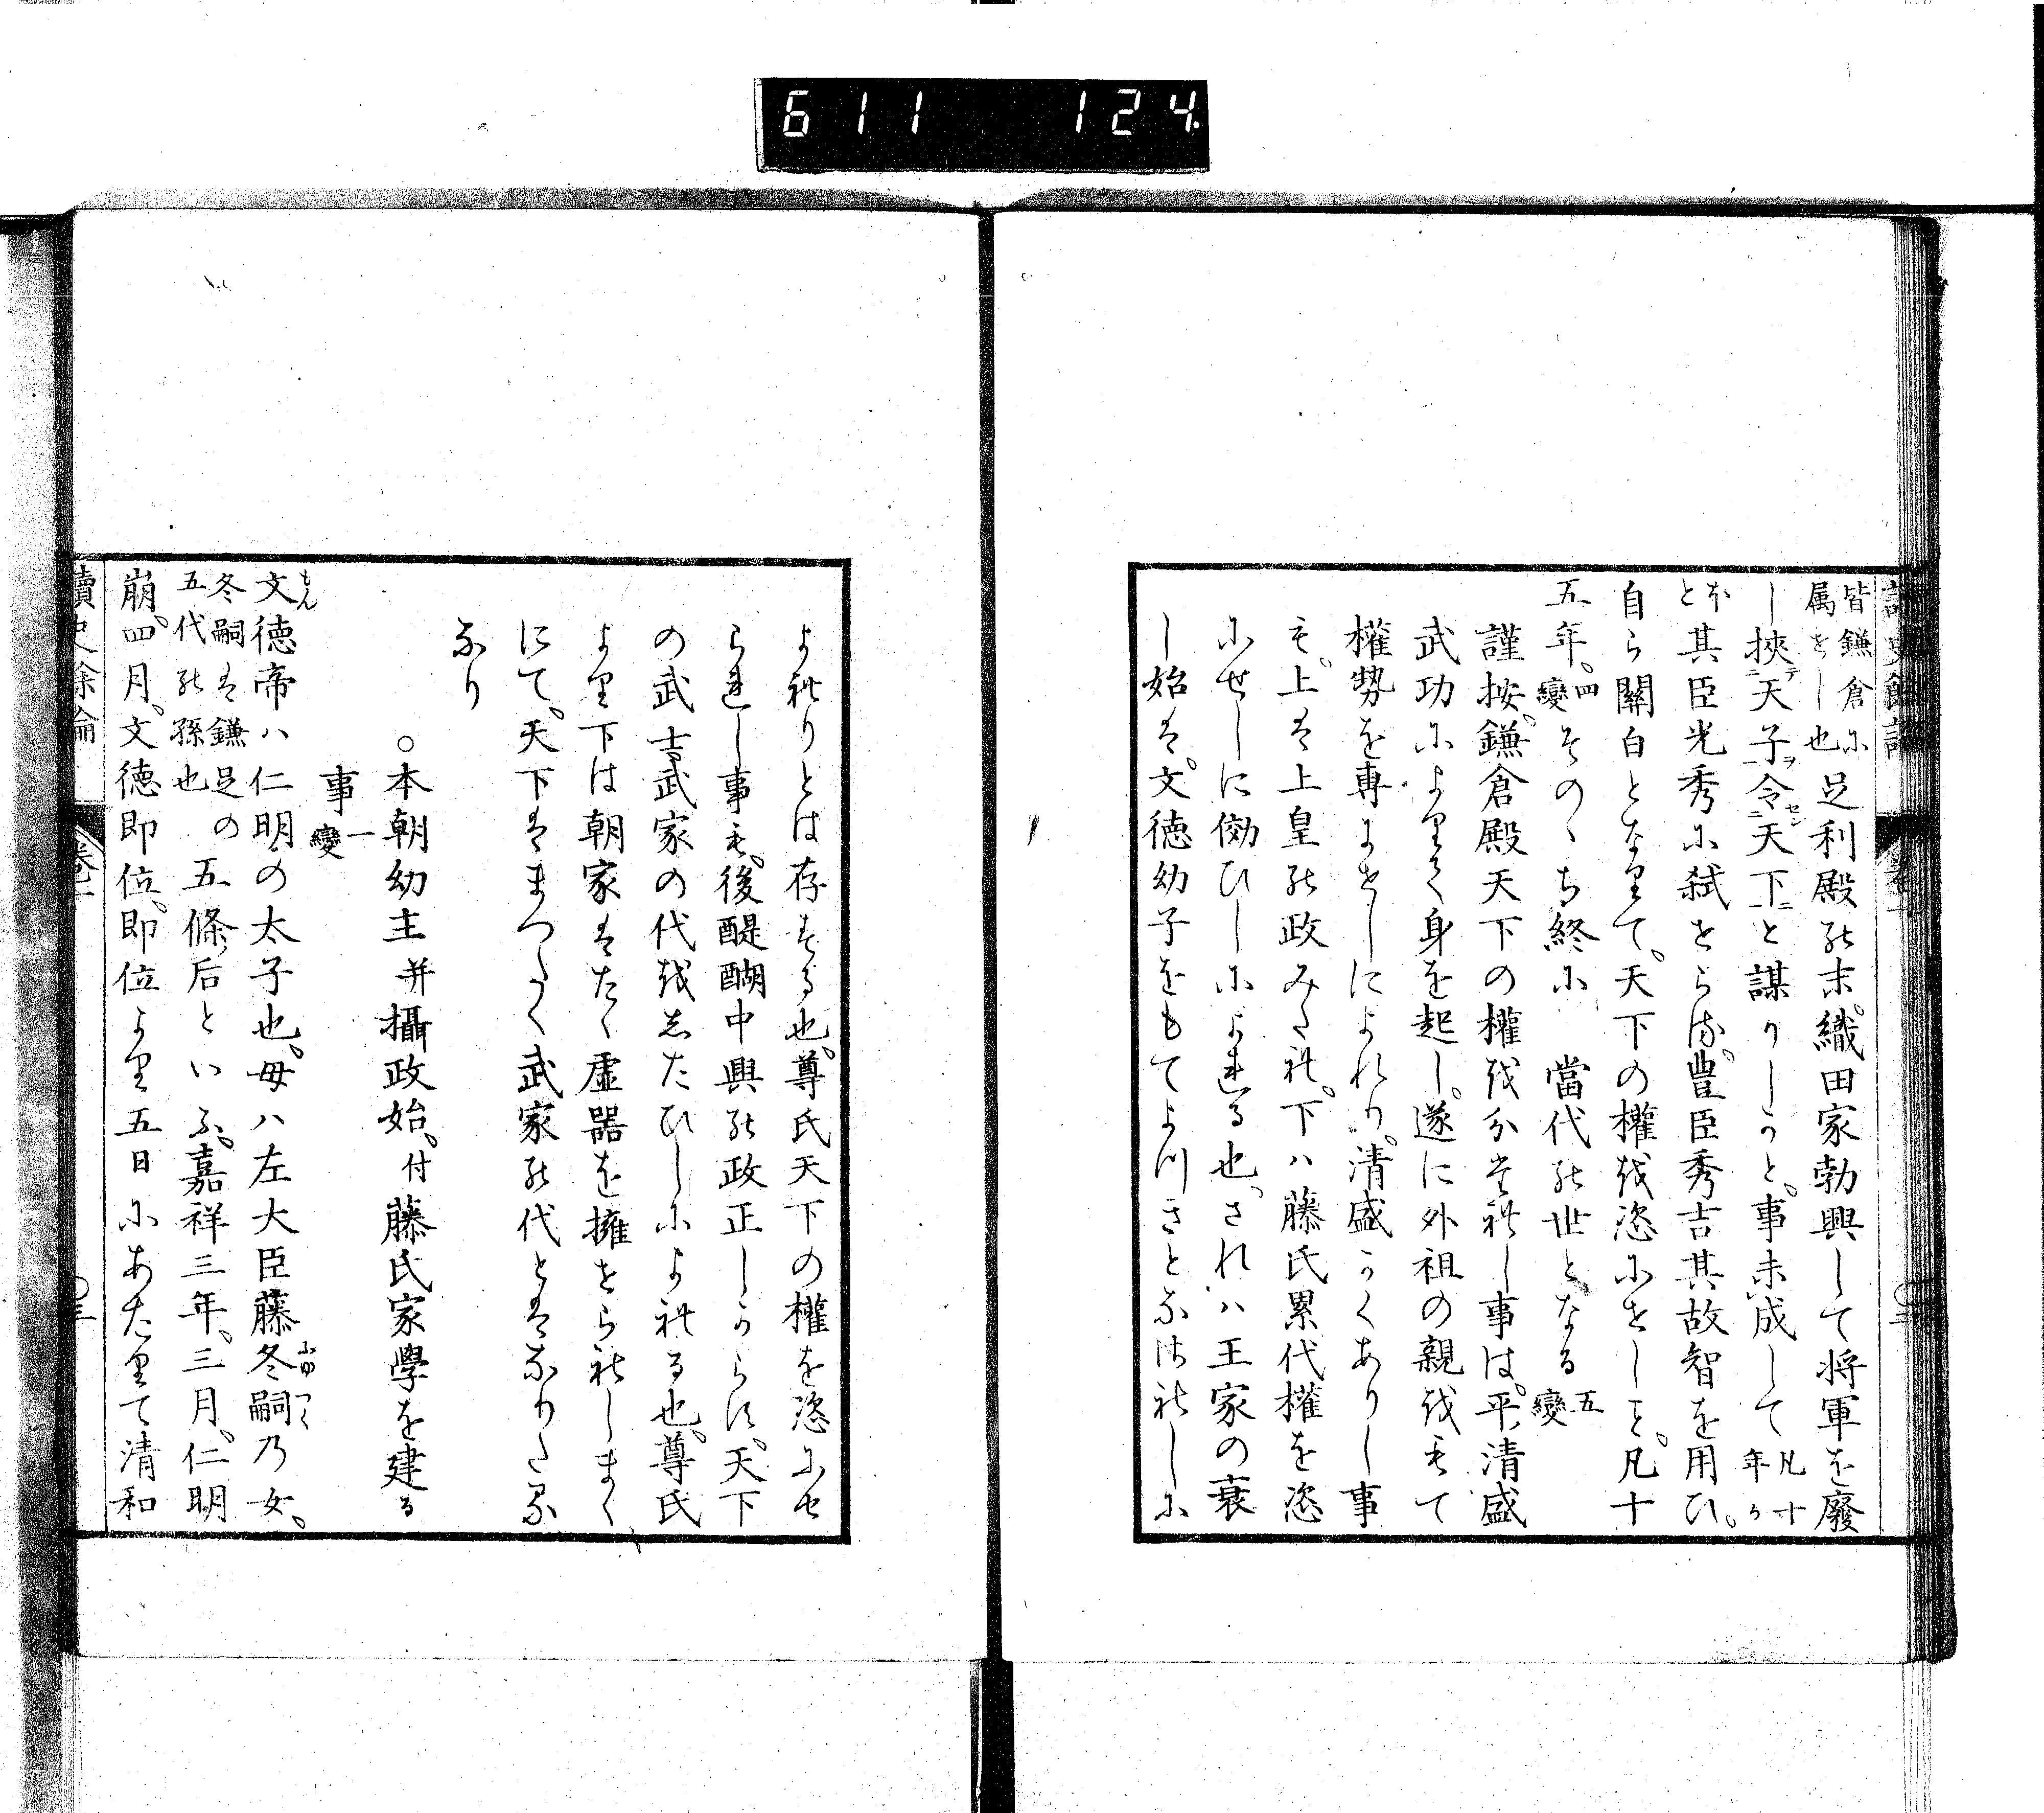 6 1 1　1 2 4.
皆鎌倉に属せし也足利殿の末。織田家勃興して将軍を廢
し挾天子令天下と謀りしかと。事未成して凡十年か
ほと其臣光秀に弑せらる。豊臣秀吉其故智を用ひ。
自ら關白となりて。天下の權を恣にせしこと。凡十
五年。四變そのゝち終に　當代の世となる五變
謹按。鎌倉殿天下の權を分たれし事は。平清盛
武功によりて身を起し。遂に外祖の親をもて
權勢を専にせしによれり。清盛かくありし事
も。上は上皇の政みたれ。下ハ藤氏累代權を恣
にせしに傚ひしによれる也。されハ王家の衰
し始は。文徳幼子をもてよつきとなされしに
よれりとは存する也。尊氏天下の權を恣にせ
られし事も。後醍醐中興の政正しからす。天下
の武士武家の代をしたひしによれる也。尊氏
より下は朝家はたゝ虚器を擁せられしまゝ
にて。天下はまつたく武家の代とはなりたる
なり
○本朝幼主并攝政始。付藤氏家學を建る
事一變
文徳帝ハ仁明の太子也。母ハ左大臣藤冬嗣乃女。
冬嗣は鎌足の五代の孫也五條ノ后といふ。嘉祥三年。三月。仁明
崩。四月。文徳即位。即位より五日にあたりて清和
讀史餘論　卷一　〇三